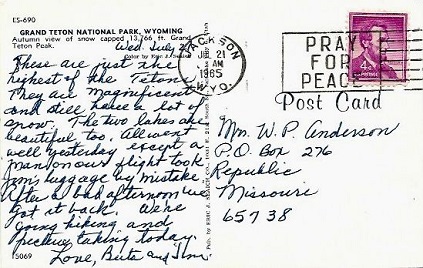 ES-690
GRAND TETON NATIONAL PARK, WYOMING
Autumn view of snow capped 13,766 ft. Grand
Teton Peak.
Wed. July 21
These are just the
highest of the Tetons.
They are magnificent
and still have a lot of
snow. The two lakes are
beautiful too. All went
well yesterday except a
man on our flight took
Jim's luggage by mistake
After a bad afternoon we
got it back. We're
going hiking and
picture taking today.
Love, and Jim
15069
JACKSON
JUL 21
AM
1965
WYO.
PRAY
FOR
PEACE
4¢
Post Card
Mrs. W. P. Anderson
P.O. Box 276
Republic
Missouri
65738